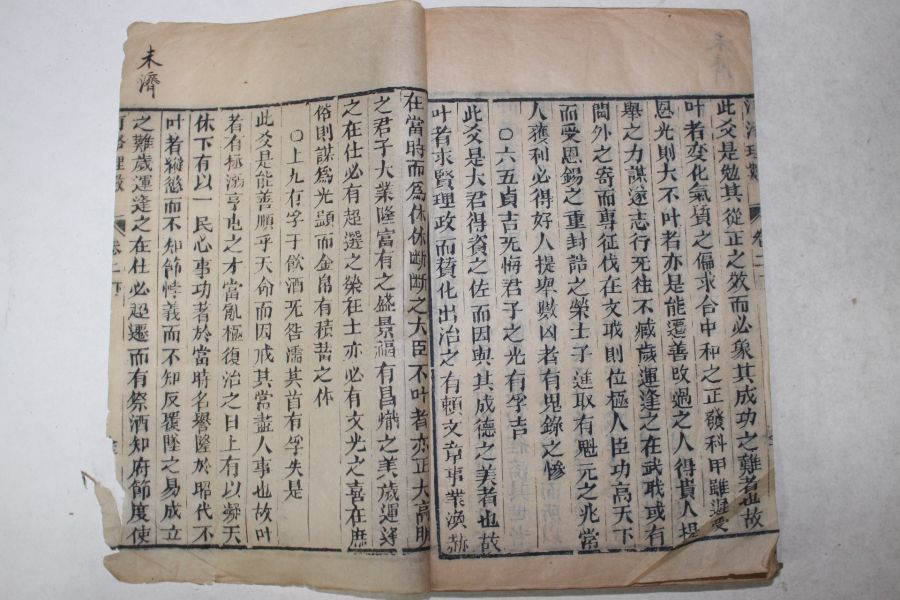 未濟
河洛理數 卷二
此爻是勉其從正之效而必象其成功之難者也故
叶者変化氣質之偏求合中和之正發科甲雖遲受
恩光則大不叶者亦是能遷善改過之人得貴人提
舉之力謀遂志行旡往不臧歲運逢之在武職或有
閫外之寄而專征伐在文職則位極人臣功高天下
而受恩錫之重封誥之榮士子進取有魁元之兆常
人獲利必得好人提與數凶者有鬼錄之慘
〇六五貞吉旡悔君子之光有孚吉
此爻是大君得資之佐而因與其成德之美者也故
叶者求賢理政而賛化出治之有頼文章事業渙赫
在當時而為休休断断之大臣不叶者亦正大高明
之君子大業隆富有之盛景福有昌熾之美歲運逢
之在仕必有超選之榮在士亦必有文光之喜在庶
俗則謀為光顯而金帛有積蓄之休
〇上九有孚于飲酒旡咎濡其首有孚失是
此爻是能善順乎天命而因戒其當盡人事也故叶
者有極溺亨屯之才當亂極復治之日上有以凝天
休下有以一民心事功著於當時名譽隆於昭代不
叶者縱慾而不知節悖義而不知反覆墜之易成立
之難歲運逢之在仕必超遷而有祭酒知府節度使
河洛理數 卷二下
未濟